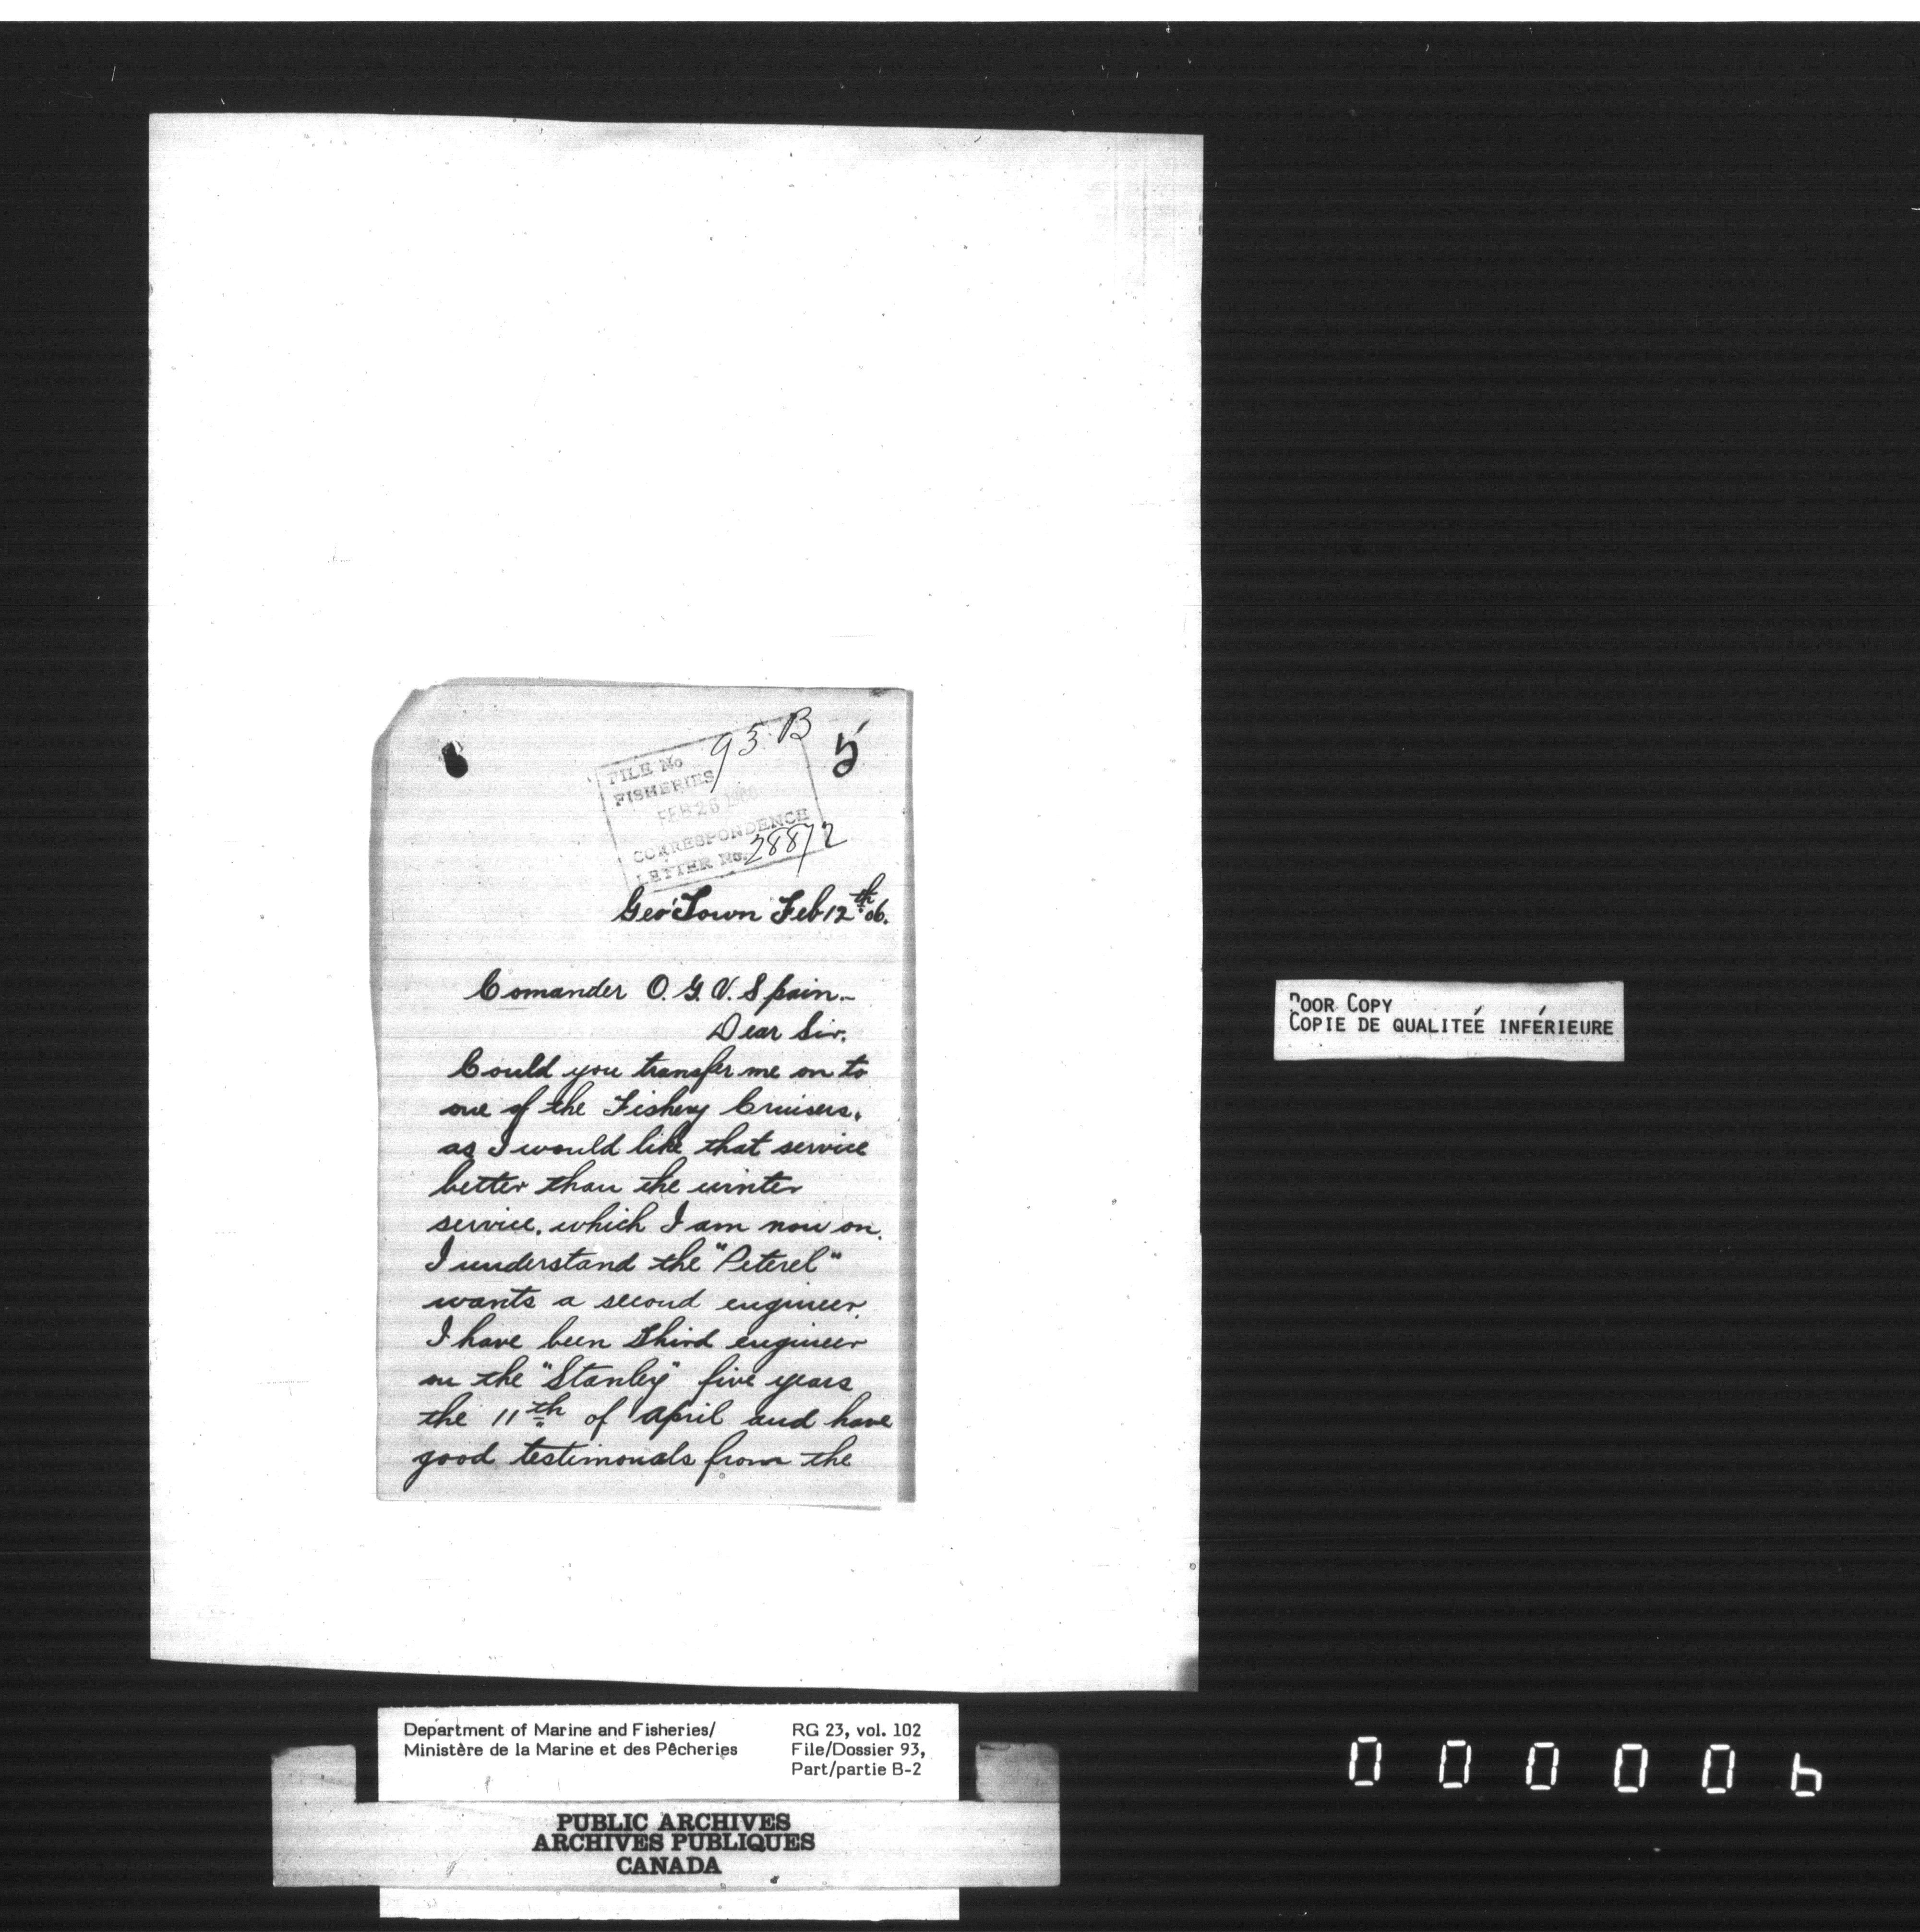 93 B
5
FILE No
FISHERIES
FEB 26 1906
CORRESPONDENCE
LETTER No. 28872
Geo'Town Feb 12th 06.
Comander O. G. V. Spain.-
Dear Sir.
Could you transfer me on to
one of the Fishery Cruisers.
as I would like that service
better than the winter
service. which I am now on.
I understand the "Peterel"
wants a second engineer.
I have been third engineer
on the "Stanley" five years
the 11th of April and have
good testimonals from the
POOR COPY
COPIE DE QUALITEÉ INFÉRIEURE
Department of Marine and Fisheries/
Ministère de la Marine et des Pêcheries
RG 23, vol. 102
File/Dossier 93,
Part/partie B-2
PUBLIC ARCHIVES
ARCHIVES PUBLIQUES
CANADA
000006